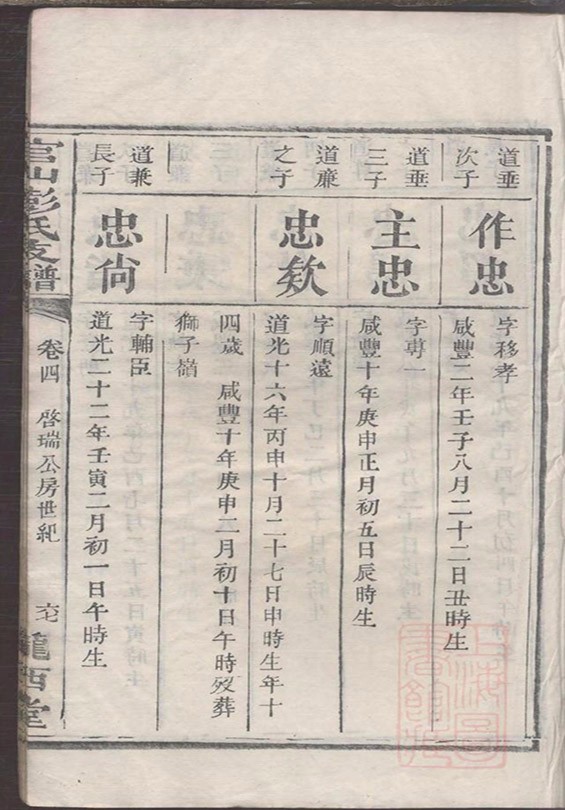 道垂
次子
作忠
字移孝
咸豐二年壬子八月二十二日丑時生
道垂
三子
主忠
字專一
咸豐十年庚申正月初五日辰時生
道廉
之子
忠欸
字順遠
道光十六年丙申十月二十七日申時生年十
四歲 咸豐十年庚申二月初十日午時歿葬
獅子嶺
道兼
長子
忠尙
字輔臣
道光二十二年壬寅二月初一日午時生
官山彭氏支譜
卷四 啓瑞公房世紀
隴西堂